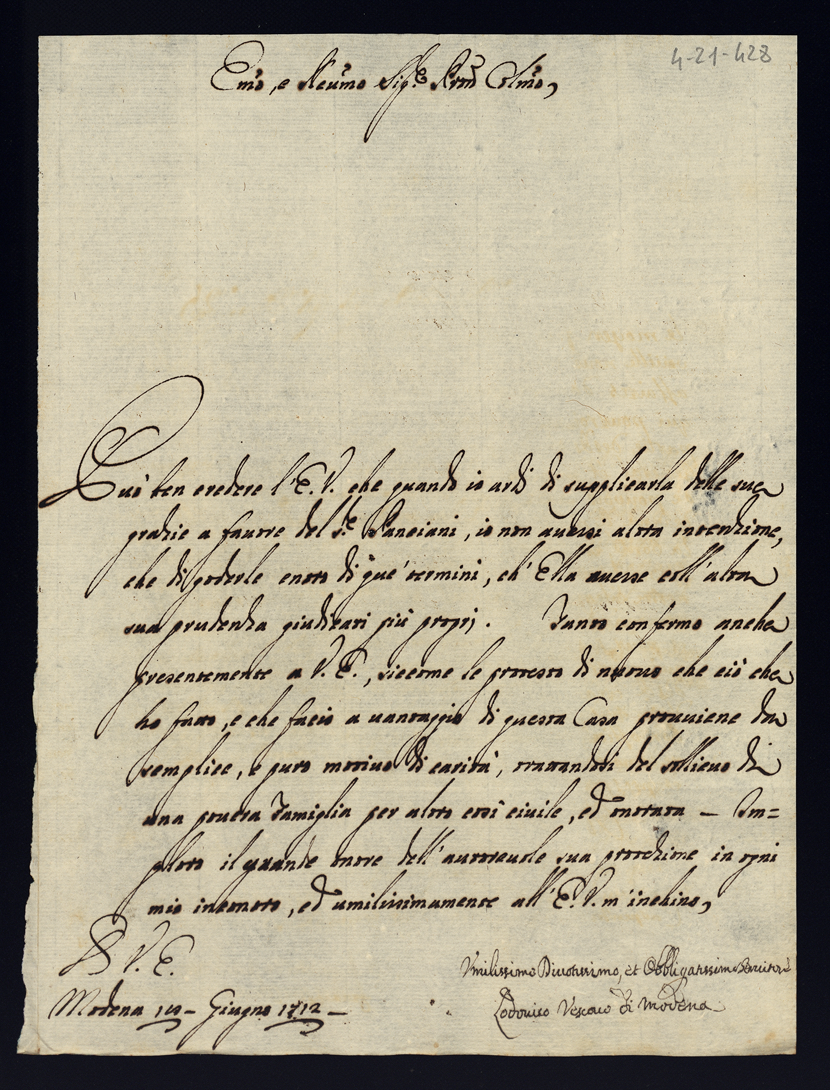 4-21-428
Emo, e Reumo Sigre Pron Colmo,
Può ben credere l'E.V. che quando io ardì di supplicarla delle sue
grazie a favore del Sr. Panciani, io non avessi altra intenzione,
che di goderle entro di que' termini, ch'Ella avesse coll'alta
sua prudenza giudicati più proprj. Tanto confermo anche
presentemente a V.E., siccome le protesto di nuovo che ciò che
ho fatto, e che facio a vantaggio di questa Casa proviene da
semplice, e puro motivo di carità, trattandosi del sollievo di
una povera Famiglia per altro così civile, ed onorata – Im=
ploro il grande onore dell'autorevole sua protezione in ogni
mio incontro, ed umilissimamente all'E.V. m'inchino,
D V. E.
Modena Giugno 1712 –
Vmilissimo Divotissimo, et Obbligatissimo Servitore
Lodovico Vescovo di Modena